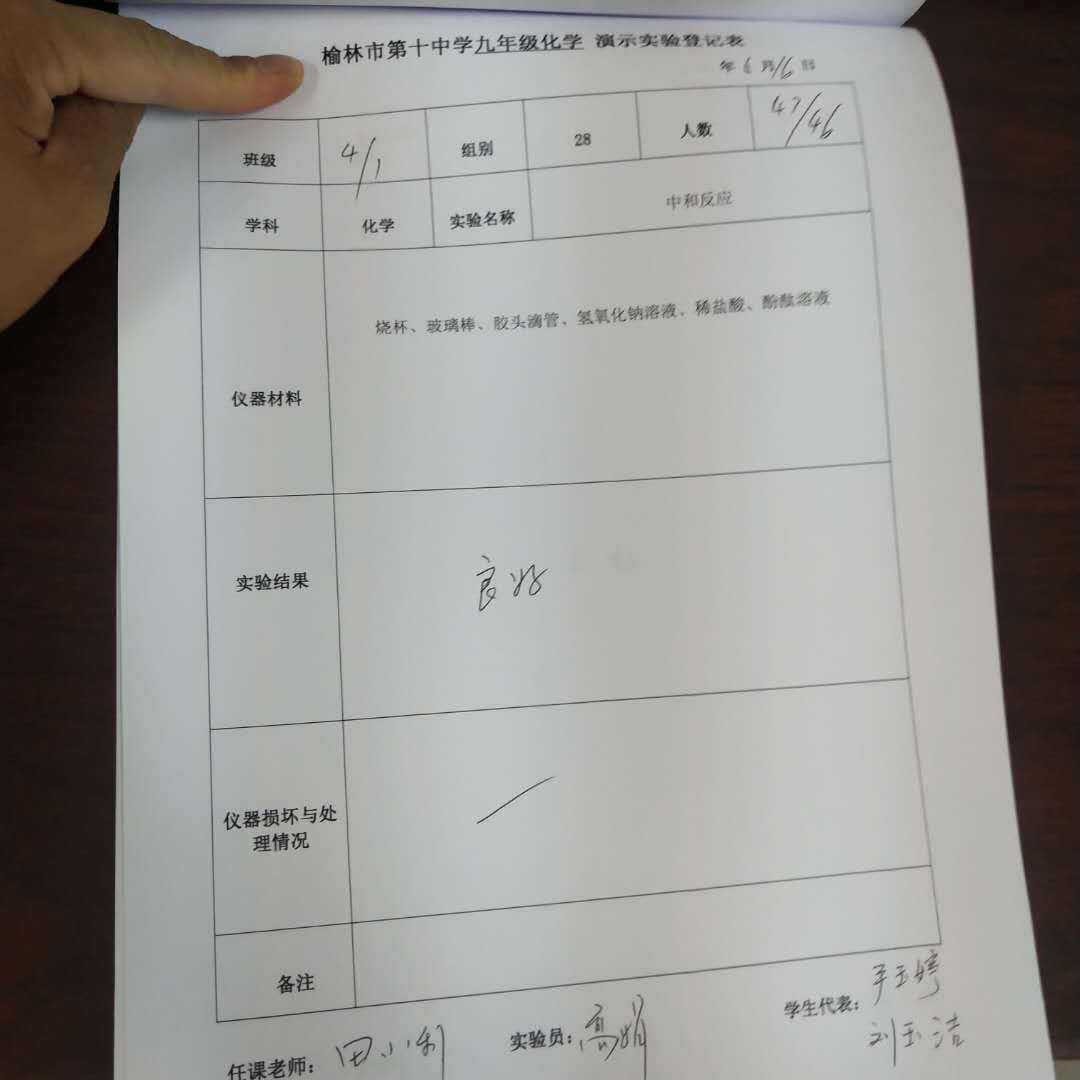 榆林市第十中学九年级化学 演示实验登记表
年 6 月 16 日
班级 4/1 组别 28 人数 47/46
学科 化学 实验名称 中和反应
仪器材料 烧杯、玻璃棒、胶头滴管、氢氧化钠溶液、稀盐酸、酚酞溶液
实验结果 良好
仪器损坏与处
理情况
备注
任课老师: 田小利 实验员: 高娟 学生代表:
刘玉洁